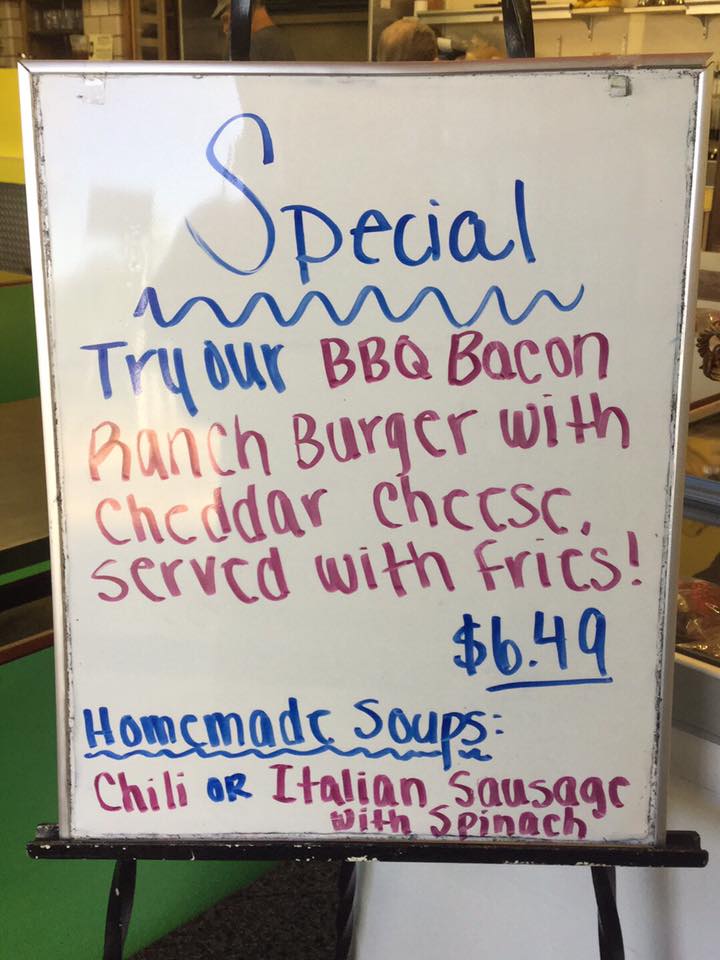 Special
Try our BBQ Bacon
Ranch Burger with
cheddar cheese,
served with fries!
$6.49
Homemade Soups:
Chili OR Italian Sausage
with Spinach